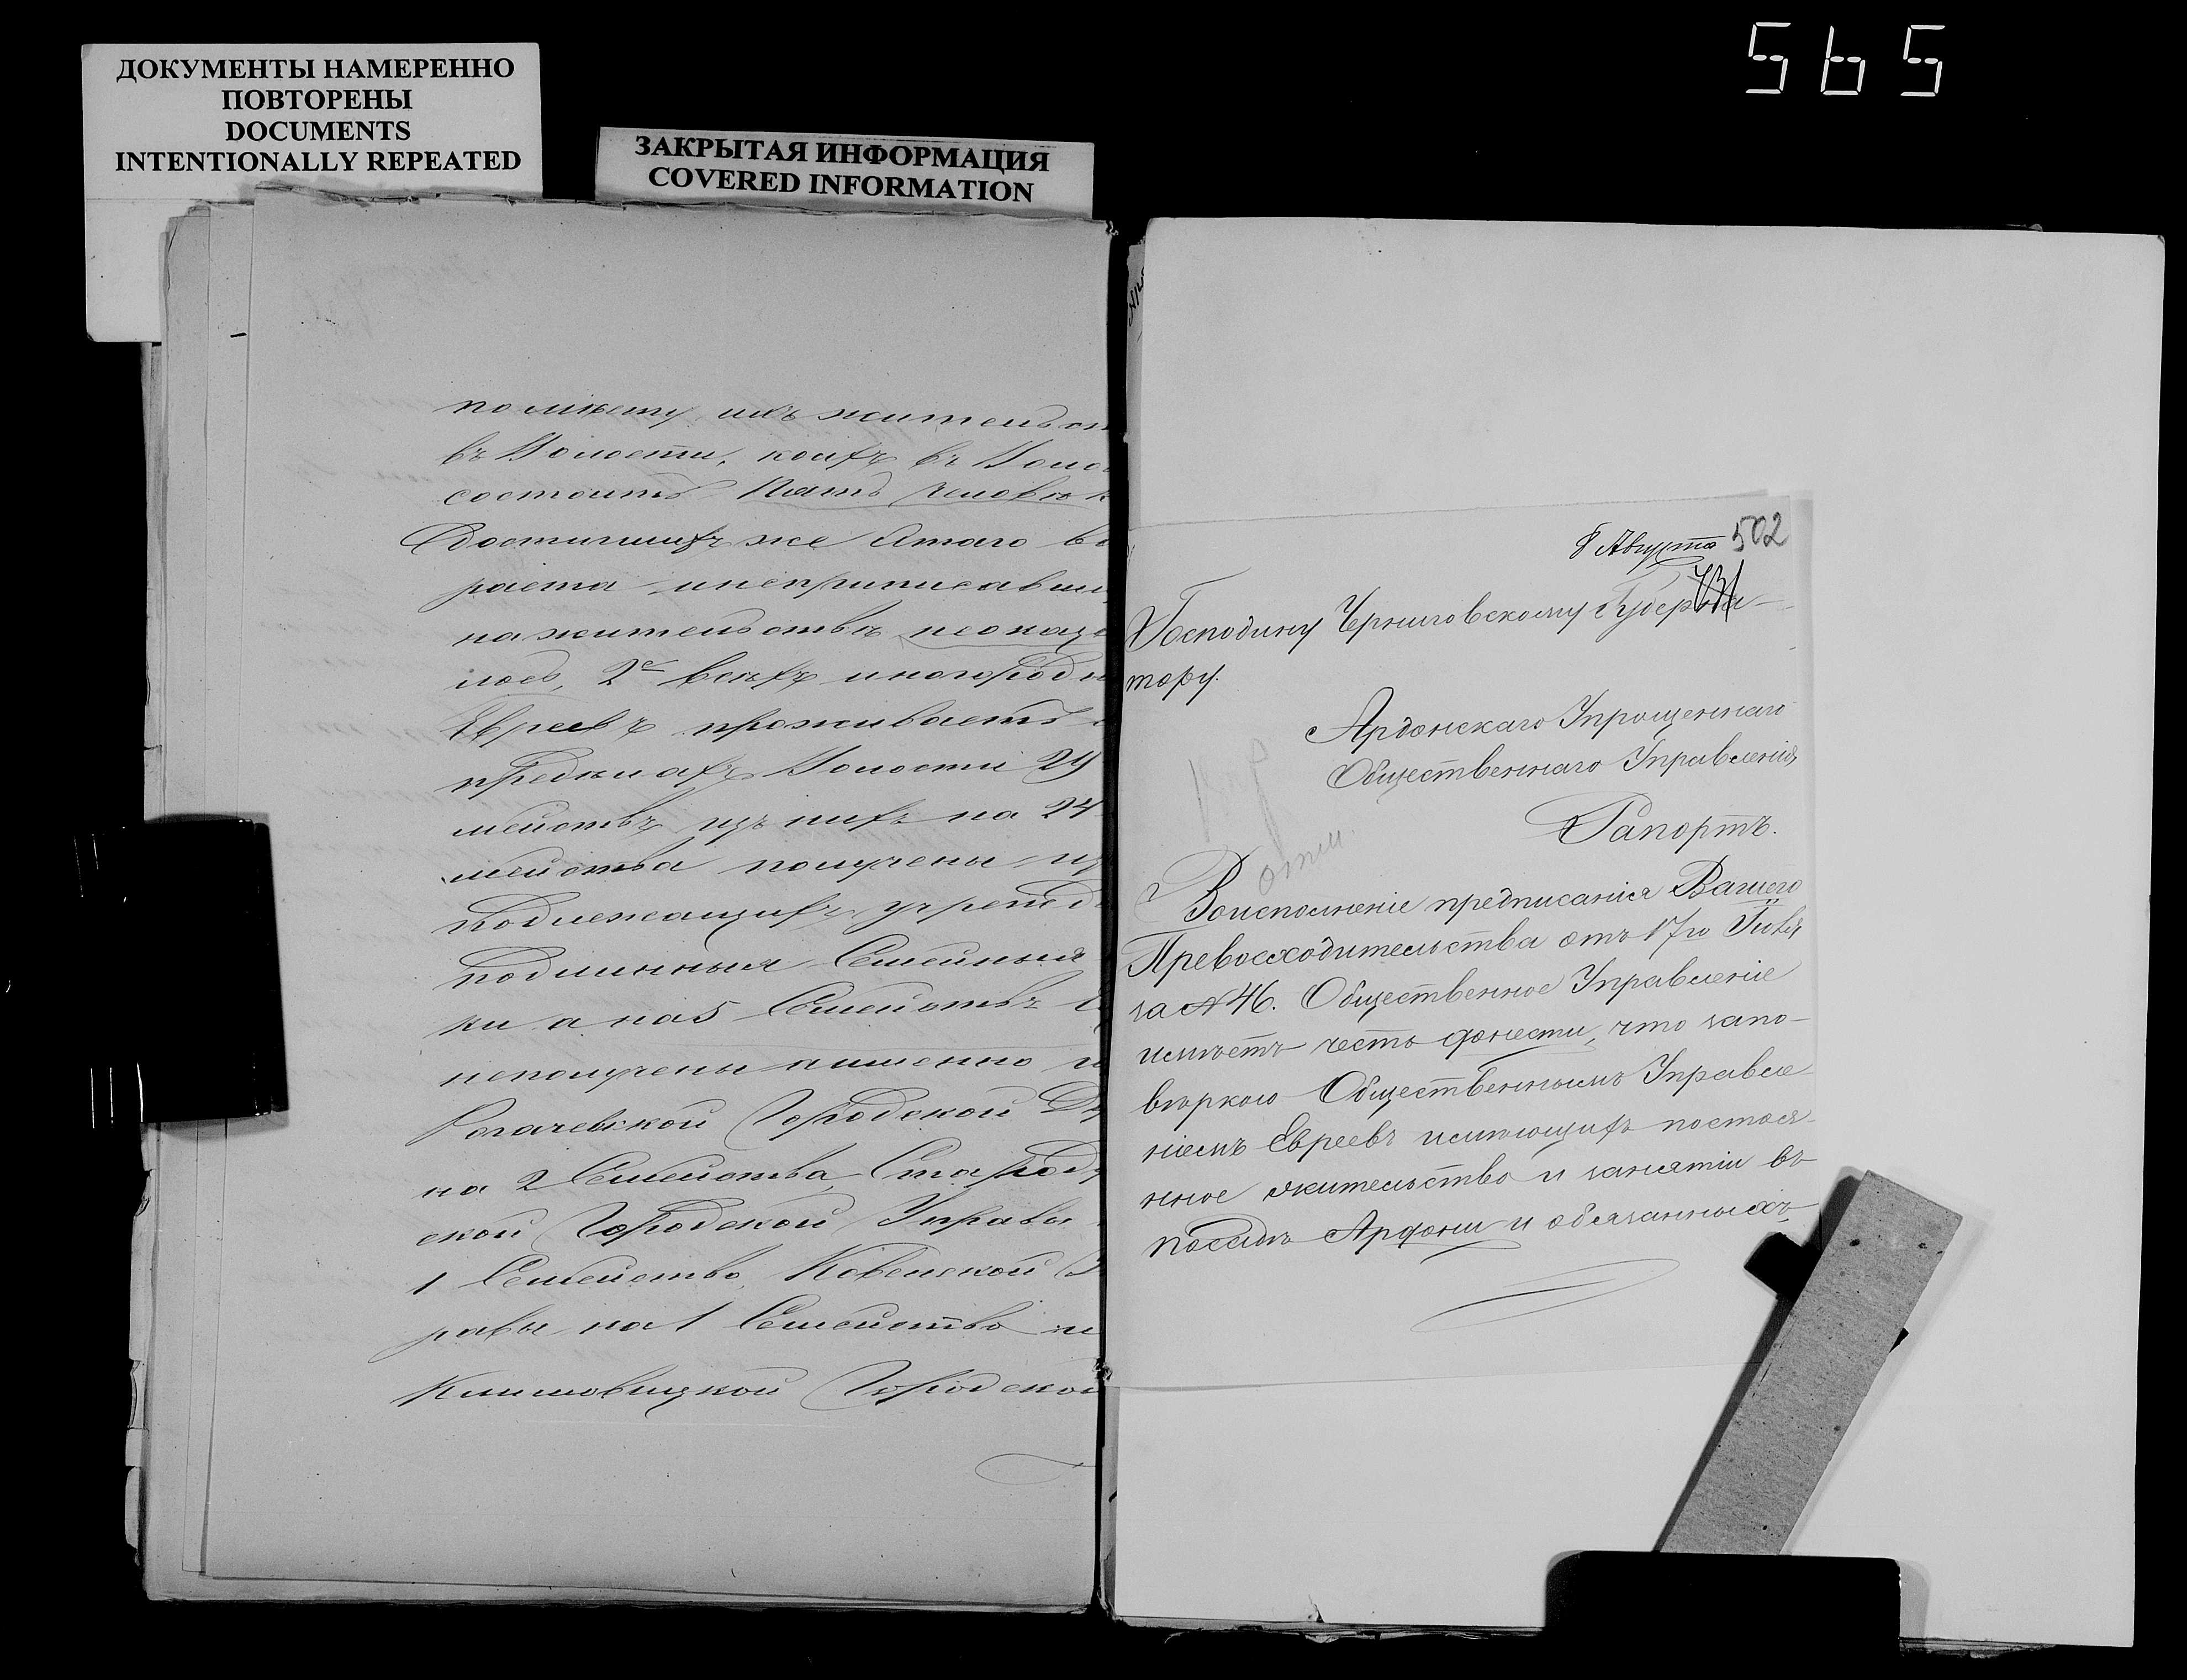 565
ДОКУМЕНТЫ НАМЕРЕННО
ПОВТОРЕНЫ
DOCUMENTS
INTENTIONALLY REPEATED
ЗАКРЫТАЯ ИНФОРМАЦИЯ
COVERED INFORMATION
по месту ихъ жительст
въ Волости, коихъ въ Воло
состоитъ Пять человек
Достигшихъ же этаго во
раста инеприписавши
на жительствѣ неоказа
лось, 2е всѣхъ иногородн
Евреевъ проживаетъ
предѣлахъ Волости 29
мействъ изъ нихъ на 24
мейства получены из
подлежащихъ учрежд
подлинныя Семейныя
ки а на 5 Семействъ
неполучены аименно
Рогачевской Городской Ду
на 2 Семейства, Староду
ской Городской Управы
1 Семейство, Ковенской
равы на 1 Семейство и
Климовицкой Городской
8 Августа 502
Господину Черниговскому Губерна-
тору.
Ардонскаго Упрощеннаго
Общественнаго Управленія
Рапортъ.
Воисполненіе предписанія Вашего
Превосходительства отъ 17го Іюля
за № 46. Общественное Управленіе
имѣетъ честь донести, что запо-
вѣркою Общественнымъ Управле-
ніемъ Евреевъ имѣющихъ постоя-
нное жительство и занятіи въ
посадѣ Ардони и обязанныхъ